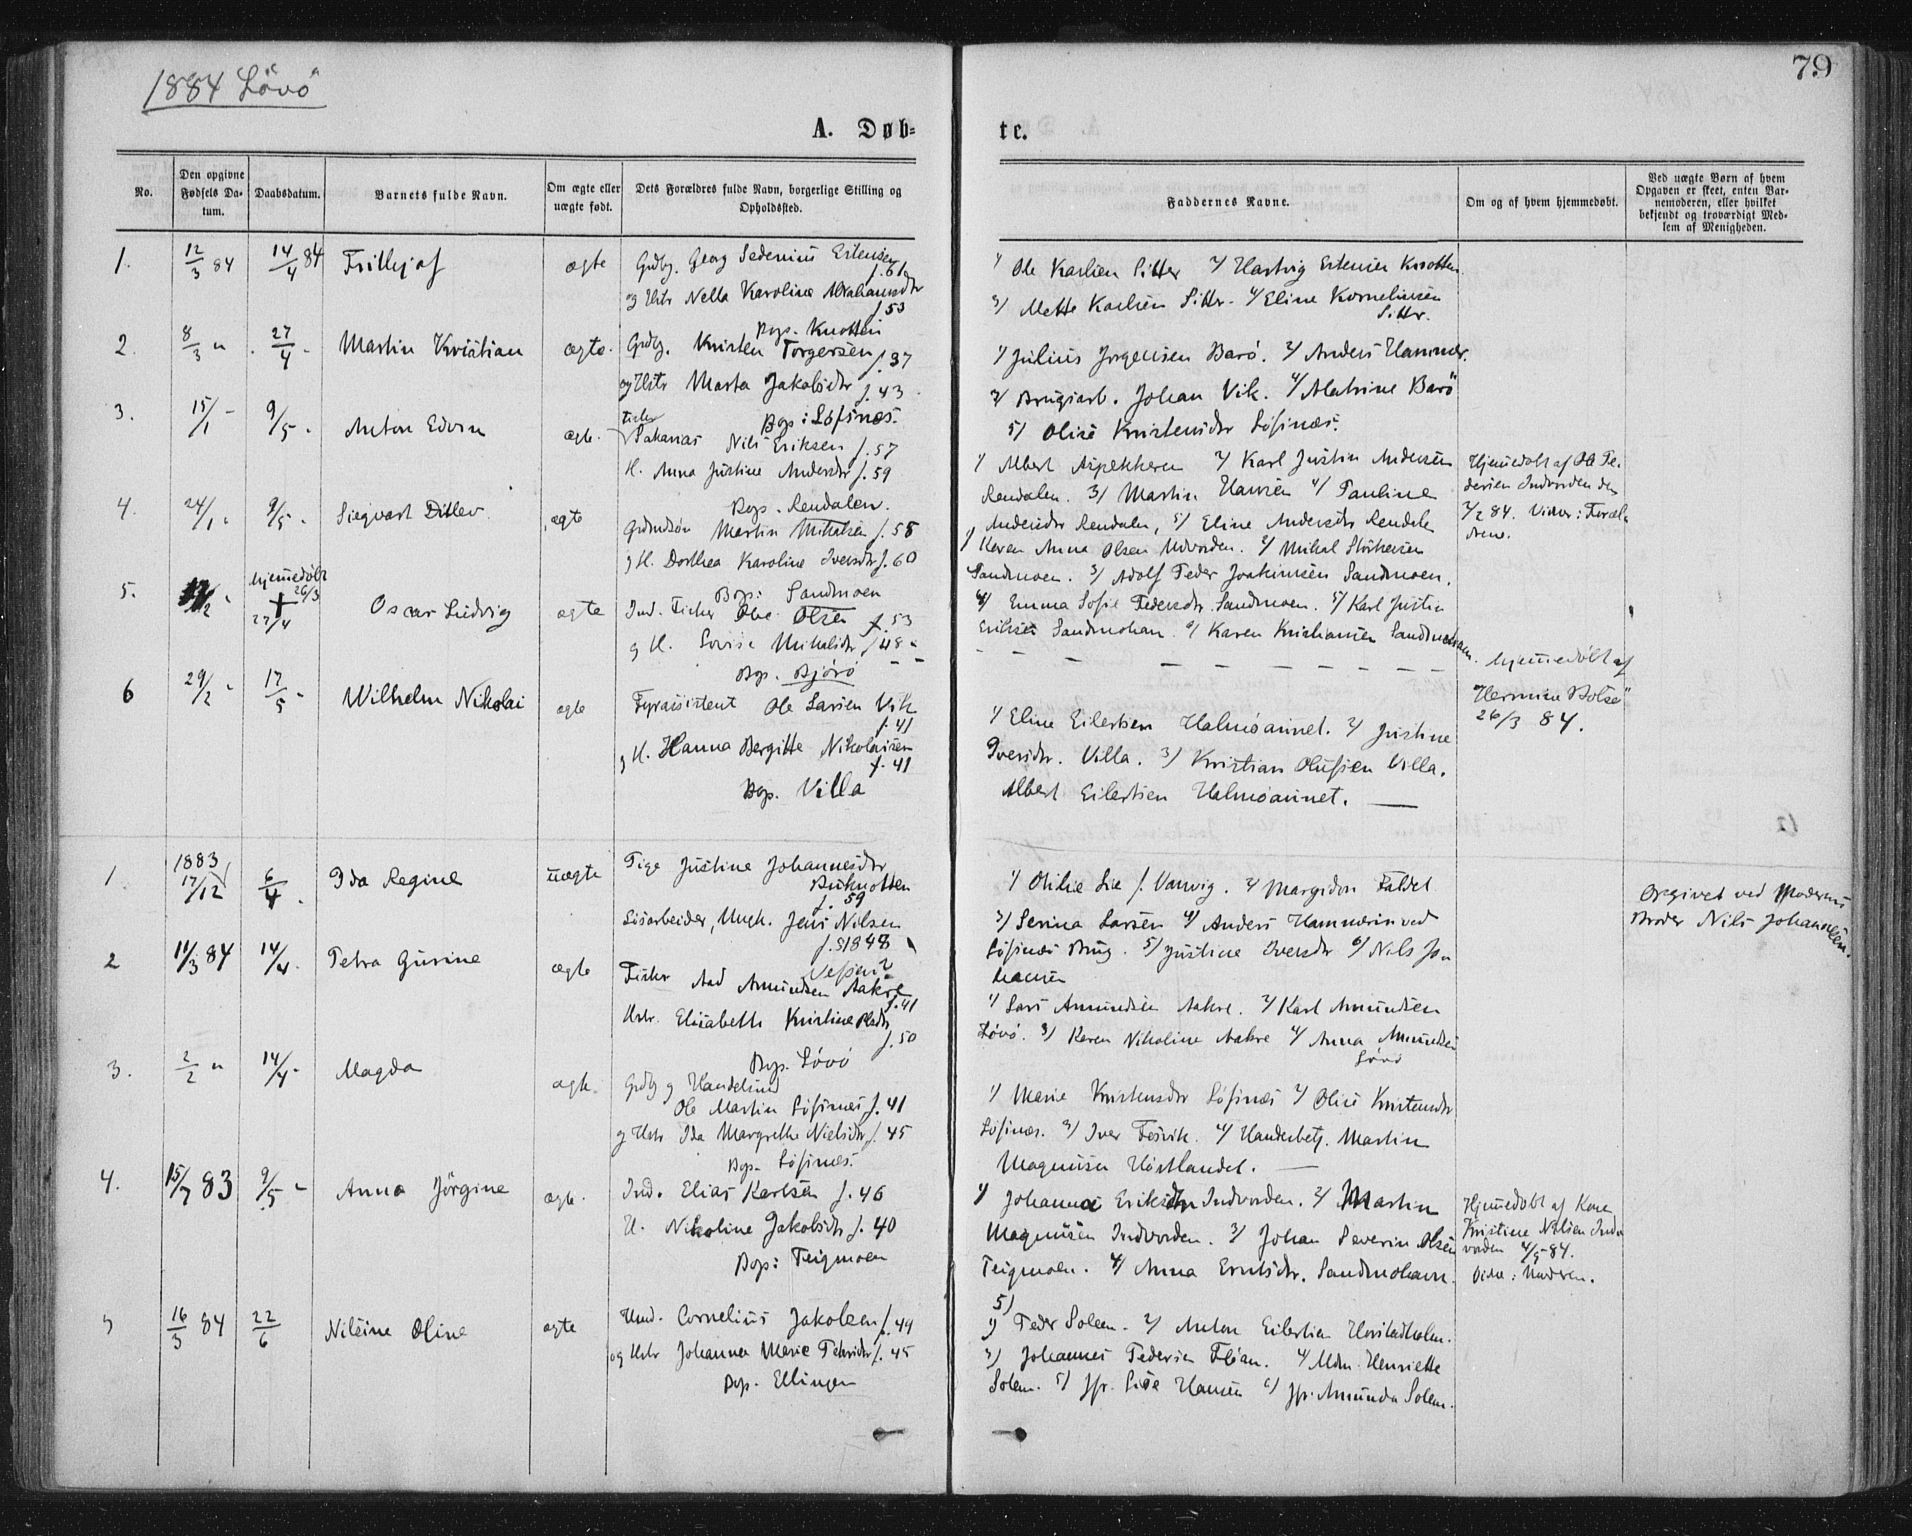 1884 Lövö
79
A. Døb-
te.
No.
Den opgivne Fødsels Da-tum.
Daabsdatum.
Barnets fulde Navn.
Om ægte eller uægte født.
Dets Forældres fulde Navn, borgerlige Stilling og Opholdssted.
Faddernes Navne.
Om og af hvem hjemmedøbt.
Ved uægte Børn af hvem Opgaven er skeet, enten Bar-nemoderen, eller hvilket bekjendt og troværdigt Med-lem af Menigheden.
1. 12/3 84 14/4 84 Frithjof ægte
Grdbg. Georg Sedenius Ertensen f. 61
og Hstr Nella Karoline Abrahamsdtr f. 53
Bop. Knotten
1/ Ole Karlsen Sitter 2/ Hartvig Ertensen Knotten
3/ Mette Karlsen Sittr. 4/ Eline Korneliussen
Sittr.
2. 8/3 " 27/4 - Martin Kristian ægte.
Grdbg. Kristen Torgersen f. 37
og Hstr Marta Jakobsdtr f. 43
Bop: Löfsnæs.
1/ Julius Jörgensen Barö. 2/ Anders Hammer.
3/ Brugsarb. Johan Vik. 4/ Alatrine Barö
5/ Olise Kristensdtr Löfsnæs.
3. 15/1 - 9/5 - Anton Edvin ægte.
Fisker
Nils Eriksen f. 57
H. Anna Justine Andersdtr f. 59
Bop. Rendalen.
1/ Albert Aspekheren 2/ Karl Justin Andersen
Rendalen. 3/ Martin Hansen 4/ Pauline
Andersdtr Rendalen, 5/ Eline Andersdtr Rendalen
Hjemmedöbt af Ole Pe-
dersen Indvorden den
2/2 84. Vidner: Foræl-
drene.
4. 24/1 - 9/5 - Siegvart Ditlev ægte
Grdmdsön Martin Mikalsen f. 58
g H. Dorthea Karoline Iversdtr f. 60
Bop: Sandmoen
1/ Karen Anna Olsen Udvorden. 2/ Mikal
Sandmoen. 3/ Adolf Peder Joakimsen Sandmoen.
4/ Emma Sofie Pedersdtr Sandmoen. 5/ Karl Justin
Eriksen Sandmohavn. 6/ Karen Kristiansen Sandmohavn.
5. /2 - hjemmedöbt 26/3 + 27/4 Oscar Ludvig ægte
Ind. Fisker Ole Olsen f. 53
g H. Lovise Mikalsdtr f. 48
Bop. Björö
- - - - - - - - -
hjemmedöbt af
Hermine Botsö
26/3 84.
6 29/2 - 17/5 - Wilhelm Nikolai ægte
Fyrassistent Ole Larsen Vik
f. 41
g H. Hanna Bergitte Nikolaisen
f. 41
Bop. Villa
1/ Eline Eilertsen Halmöannet. 2/ Justine
Iversdtr. Villa. 3/ Kristian Olufsen Villa.
Albert Eilertsen Halmöannet.
1. 1883 17/12 6/4 - Ida Regine uægte
Pige Justine Johannesdtr
f. 59
Sisarbeider, Ungk. Jens Nilsen
f. 1848
1/ Otilie Lie f. Vanvig. 2/ Margidon Faldet
3/ Serina Larsen 4/ Anders Hammer ved
Löfsnæs Brug. 5/ Justine Iversdtr 6/ Nils Jo-
hansen
Opgivet ved Moderens
Broder Nils Johansen.
2 11/3 84 14/4 - Petra Gurine ægte
Fisker Aad Amundsen Aakre
f. 41
Hstr. Elisabeth Kristine
f. 50
Bop. Lövö
1/ Lars Amundsen Aakre. 2/ Karl Amundsen
Lövö. 3/ Karen Nikoline Aakre 4/ Anna Amundsen
Lövö
3. 2/2 " 14/4 - Magda ægte.
Grdbg g Handelsmd
Ole Martin Löfsnæs f. 41
g Hstr Ida Margrethe Nielsdtr f. 45
Bop. Löfsnæs.
1/ Marie Kristensdtr Löfsnæs 2/ Olise Kristensdtr
Löfsnæs. 3/ Iver Fesvik. 4/ Handelsbetj. Martin
Magnusen Höstlandet.
4. 15/7 83 9/5 - Anna Jörgine ægte.
Ind. Elias Karlsen f. 46
H. Nikoline Jakobsdtr f. 40
Bop: Teigmoen
1/ Johanna Eriksdtr Indvorden. 2/ Martin
Magnusen Indvorden. 3/ Johan Severin Olsen
Teigmoen. 4/ Anna Erntsdtr. Sandmohavn.
5)
Hjemmedöbt af Karen
Kristine Nilsen Ind-
vorden 84.
Vidne: Moderen.
5 16/3 84 22/6 Nilsine Oline ægte
Hmd. Cornelius Jakobsen f. 44
og Hstr Johanna Marie Petersdtr f. 45
Bop. Ellingen
1/ Peder Solem. 2/ Anton Eilertsen Hovstadholm.
3/ Johannes Pedersen Flöan. 4/ Mdm. Henriette
Solem. 5/ Jfr. Lise Hansen 6/ Jfr. Amunda Solem.